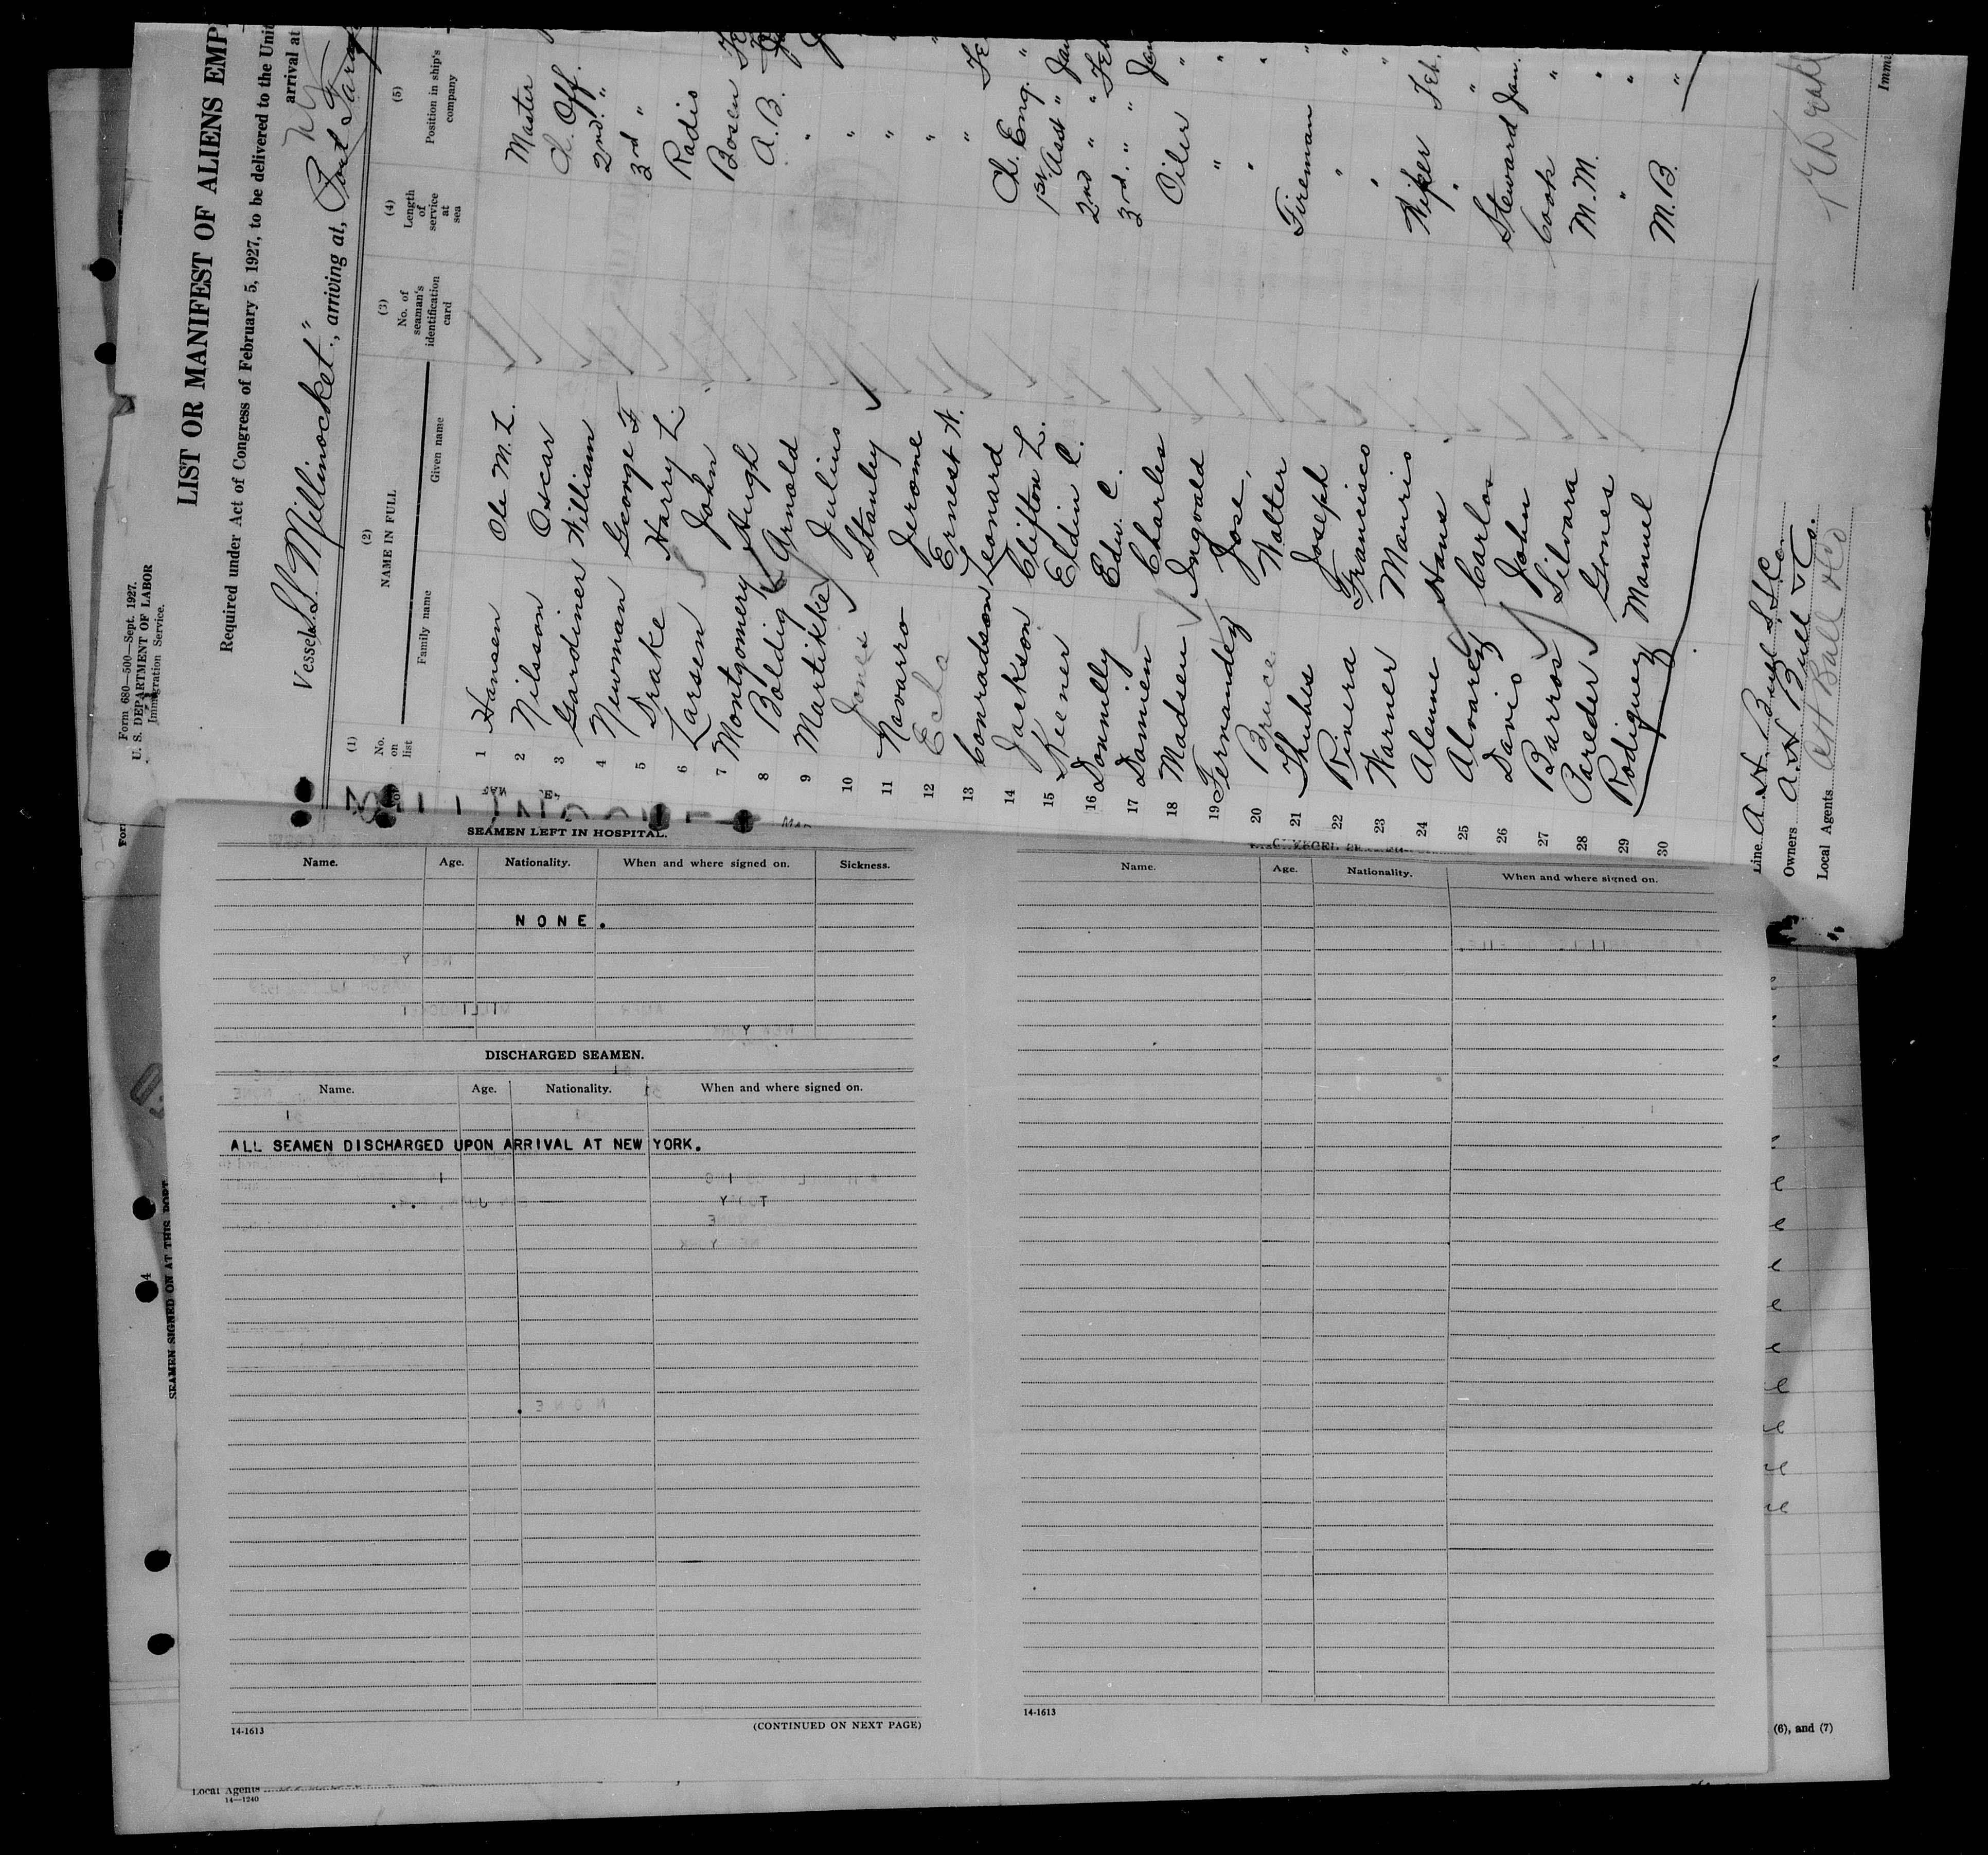 Form 680—500—Sept. 1927.
U. S. DEPARTMENT OF LABOR
Immigration Service.
LIST OR MANIFEST OF ALIENS EMP
Required under Act of Congress of February 5, 1927, to be delivered to the Unit
arrival at
Vessel S.S. "Millinocket", arriving at,
(1) No. on list
(2) NAME IN FULL
Family name Given name
(3) No. of seaman's identification card
(4) Length of service at sea
(5) Position in ship's company
1 Hansen Ole M. L. Master
2 Nilsson Oscar Ch. Off.
3 Gardiner William 2nd. "
4 Newman George F 3rd "
5 Drake Harry L. Radio
6 Larsen John Bosen
7 Montgomery Hugh A.B.
8 Boldig Arnold "
9 Martikke Julius "
10 Jones Stanley "
11 Navarro Jerome "
12 Echo Ernest A. "
13 Conradson Leonard Ch. Eng. "
14 Jackson Clifton L. 1st Asst " Jan
15 Keener Eldin C. 2nd " " Feb
16 Donnelly Edw. C. 3rd. " " Jan
17 Damen Charles Oiler "
18 Madsen Ingvald " "
19 Fernandez Jose " "
20 Bruce Walter Fireman "
21 Thubes Joseph " "
22 Rivera Francisco " "
23 Warner Mauris Wiper Feb.
24 Alenne Hans " "
25 Alvarez Carlos Steward Jan.
26 Davis John Cook "
27 Barros Silvara M.M. "
28 Pareder Gones " "
29 Rodiguez Manuel M.B. "
30
Line A. H. Bull S.S. Co.
Owners A. H. Bull & Co.
Local Agents A H Bull & Co
Immi
SEAMEN LEFT IN HOSPITAL.
Name. Age. Nationality. When and where signed on. Sickness.
NONE.
DISCHARGED SEAMEN.
Name. Age. Nationality. When and where signed on.
ALL SEAMEN DISCHARGED UPON ARRIVAL AT NEW YORK.
14-1613
(CONTINUED ON NEXT PAGE)
Name. Age. Nationality. When and where signed on.
14-1613
SEAMEN SIGNED ON AT THIS PORT
(6), and (7)
Local Agents
14—1240